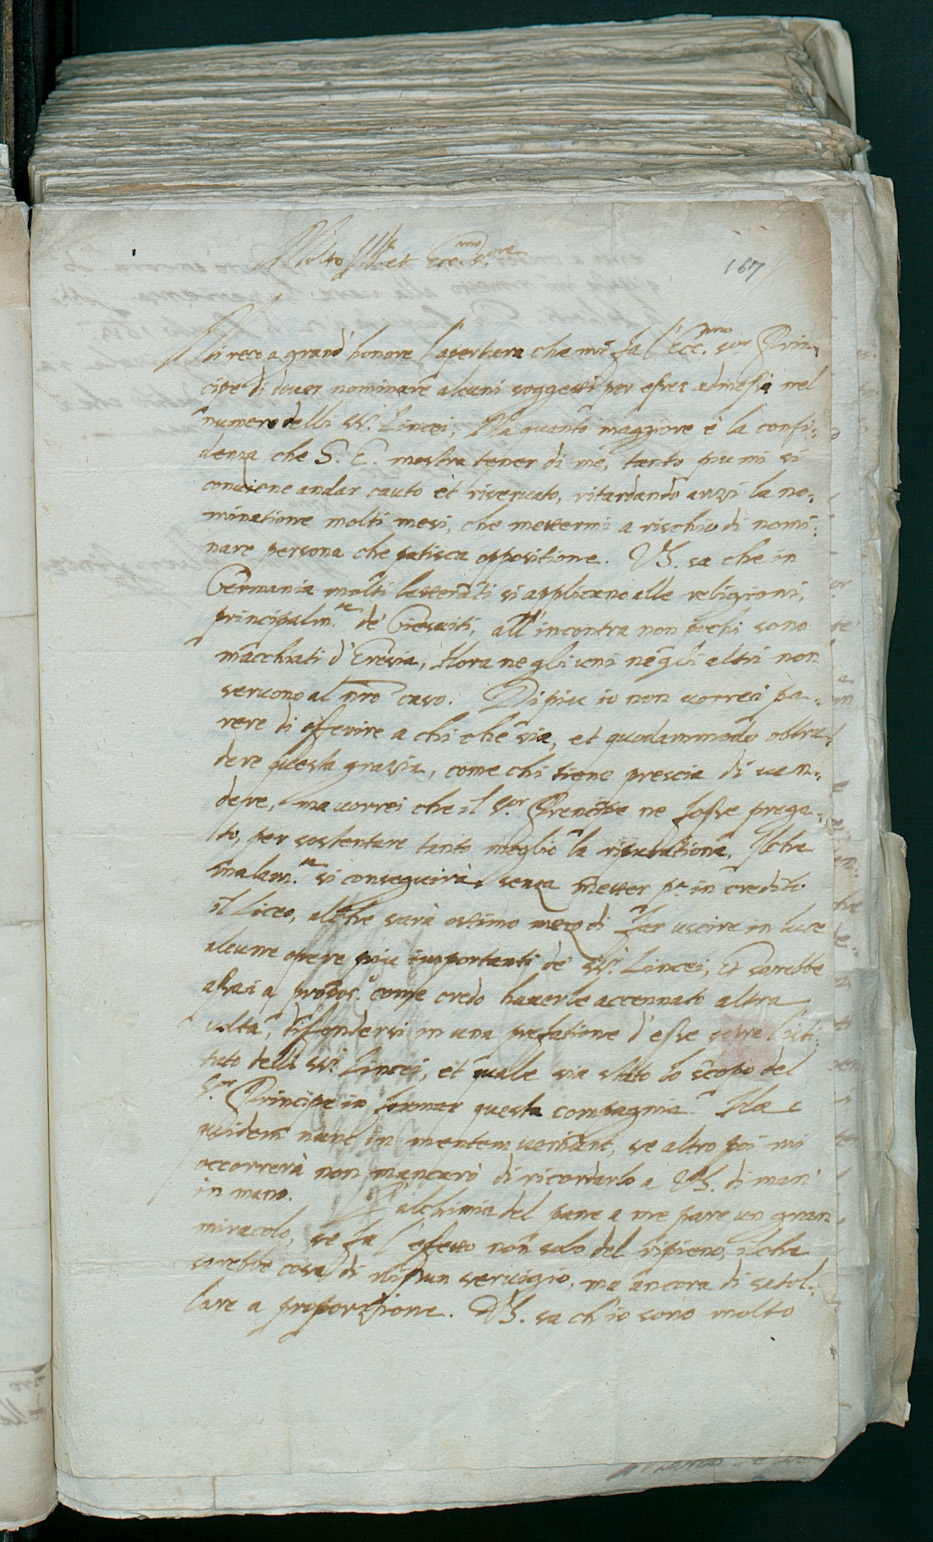 Molto Ill.re et Ecc.mo S.re
167
Mi reco a grand' honore l'apertura che mi fa l'Ecc.mo S.or Prin-
cipe di dover nominare alcuni soggetti per esser admessi nel
numero delli SS.ri Lincei, Ma quanto maggiore è la confi:
denza che S. E. mostra tener di me, tanto piu mi si
conviene andar cauto et riservato, ritardando anzi la no:
minatione molti mesi, che mettermi a rischio di nomi:
nare persona che patisca oppositione. VS. sa che in
Germania molti letterati si applicano alle religioni,
principalm.te de' Giesuiti, all'incontra non pochi sono
macchiati d'Eresia, Hora ne gli uni ne gli altri non
servono al nro caso. Di piu io non vorrei pa-
rere di offerire a chi che sia, et quodammodo obtru
dere questa gratia, come chi tiene prescia di ven-
dere, ma vorrei che il S.or Prencipe ne fosse prega-
to, per sostentare tanto meglio la riputatione, Il che
malam.te si conseguirà, senza metter p.a in credito
il Liceo, al che sarà ottimo mezo di far uscire in luce
alcune opere piu importanti de' SS.ri Lincei, Et sarebbe
assai a propos.o come credo haverle accennato altra
volta, diffondersi in una prefatione d'esse sopra l'isti-
tuto delli SS.ri Lincei, et quale sia stato lo scopo del
S.or Principe in formar questa compagnia. Hæc
quidem nunc in mentem veniunt, se altro poi mi
occorrerà non mancarò di ricordarlo a VS. di man'
in mano. L'alchimia del pane a me pare un gran
miracolo, se fa l'effetto non solo del ripieno, il che
sarebbe cosa di nissun servigio, ma ancora di satol-
lare a proportione. VS. sa ch'io sono molto